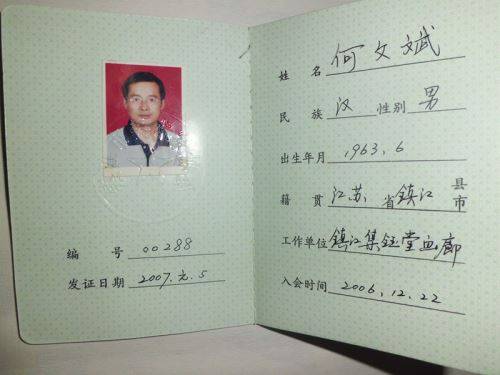 编 号 00288
发证日期 2007.元.5
姓 名 何文斌
民 族 汉 性别 男
出生年月 1963.6
籍 贯 江苏 省 镇江 县 市
工作单位 镇江集钰堂画廊
入会时间 2006.12.22